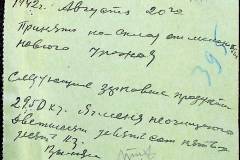 1942. Августа 20го
Принято на склад от
нового урожая
395
Следующие зерновые продукты
2950 кг. Ячменя неочищенного
две тысячи девятьсот пятьдесят кг.
Принял